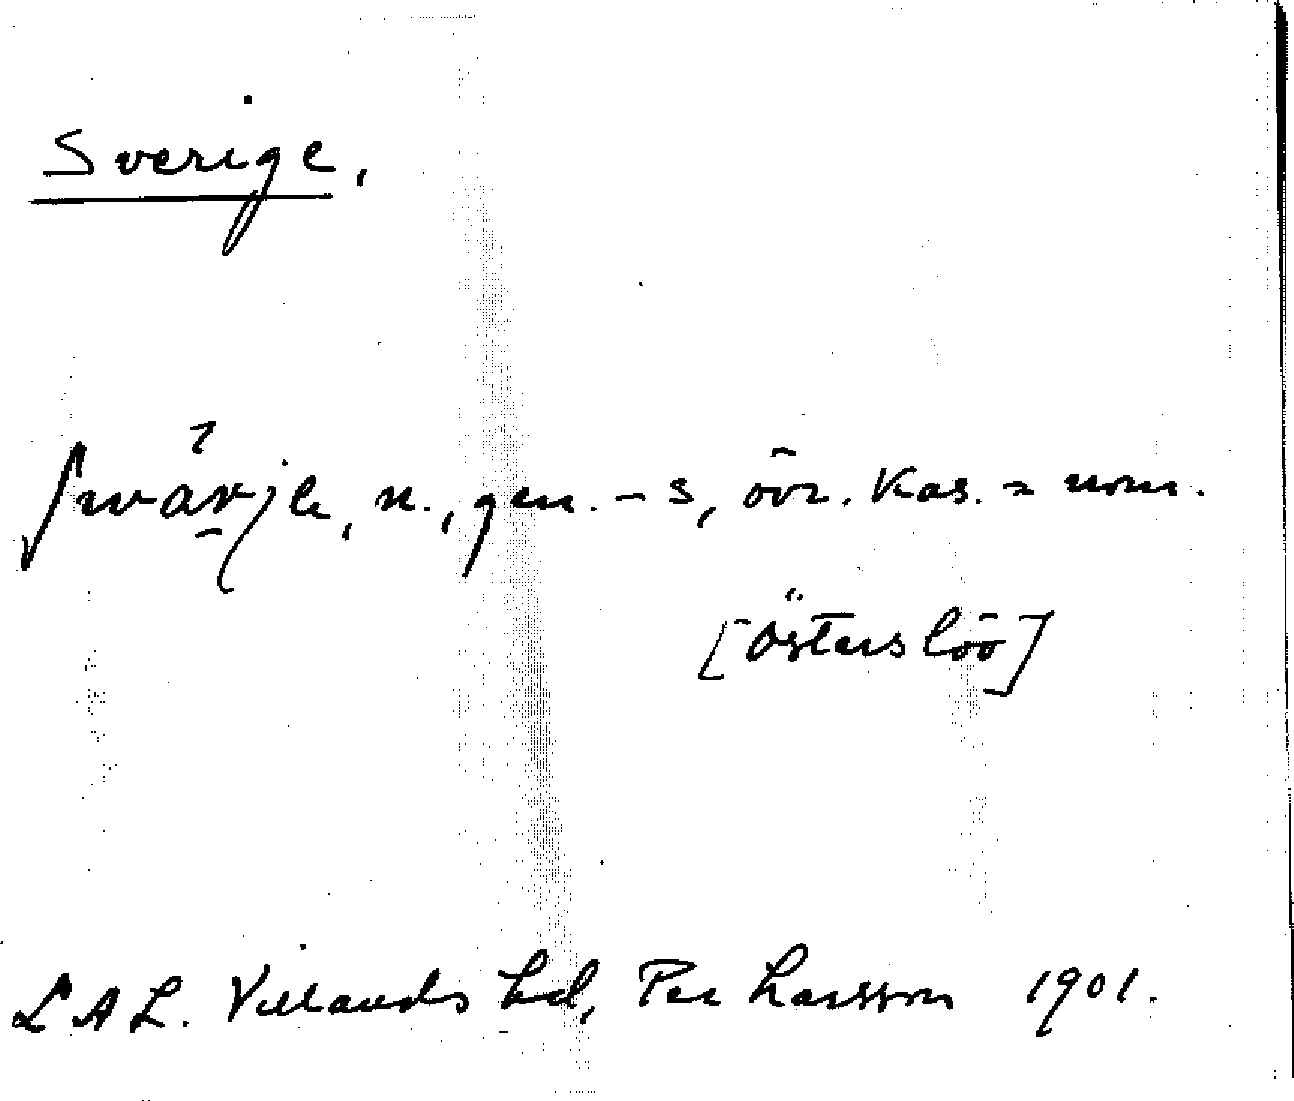 Sverige.
swärje, n., gen. -s, övr. kas. = nom.
[Österslöv]
LAL. Villands hd, Per Larsson 1901.